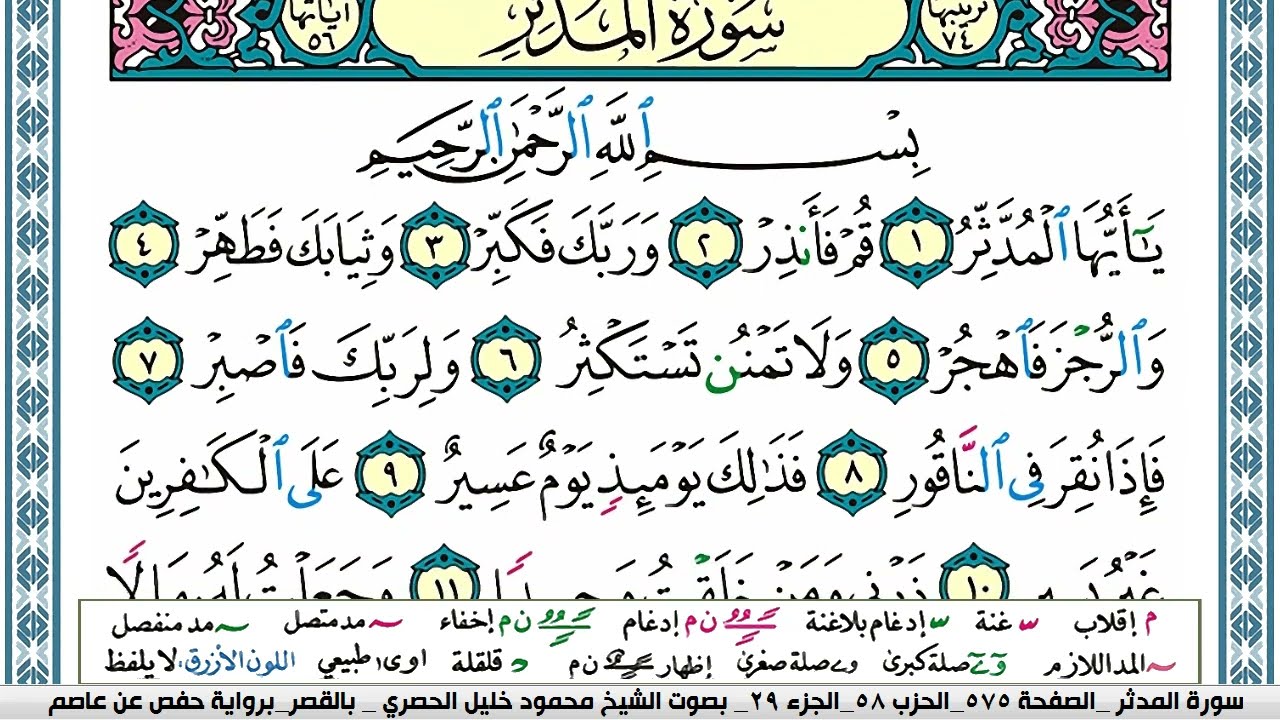 ترتيبها ٧٤ سورة المدثر آياتها ٥٦
بِسْمِ ٱللَّهِ ٱلرَّحْمَٰنِ ٱلرَّحِيمِ
يَٰٓأَيُّهَا ٱلْمُدَّثِّرُ ١ قُمْ فَأَنذِرْ ٢ وَرَبَّكَ فَكَبِّرْ ٣ وَثِيَابَكَ فَطَهِّرْ ٤
وَٱلرُّجْزَ فَٱهْجُرْ ٥ وَلَا تَمْنُن تَسْتَكْثِرُ ٦ وَلِرَبِّكَ فَٱصْبِرْ ٧
فَإِذَا نُقِرَ فِى ٱلنَّاقُورِ ٨ فَذَٰلِكَ يَوْمَئِذٍ يَوْمٌ عَسِيرٌ ٩ عَلَى ٱلْكَٰفِرِينَ
غَيْرُ يَسِيرٍ ١٠ ذَرْنِى وَمَنْ خَلَقْتُ وَحِيدًا ١١ وَجَعَلْتُ لَهُۥ مَالًا
م إقلاب س غنة س إدغام بلاغنة ن م إدغام ن م إخفاء ~ مد متصل ~ مد منفصل
~ المد اللازم و ے صلة كبرى و ے صلة صغرى إظهار ن م د قلقلة اوى، طبيعي اللون الأزرق: لا يلفظ
سورة المدثر _الصفحة ٥٧٥_الحزب ٥٨_الجزء ٢٩_ بصوت الشيخ محمود خليل الحصري _ بالقصر_برواية حفص عن عاصم